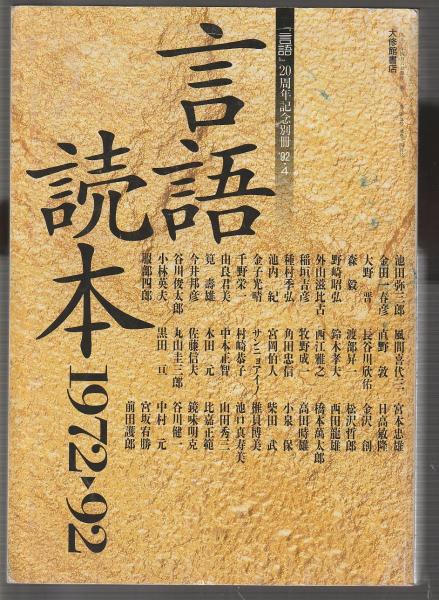 大修館書店
『言語』20周年記念別冊 '92・4
言語
読本
1972▸92
池田弥三郎 風間喜代三 宮本忠雄
金田一春彦 直野 敦 日高敏隆
大野 晋 長谷川欣佑 金沢 創
森 毅 渡部昇一 松沢哲郎
野崎昭弘 鈴木孝夫 西田龍雄
外山滋比古 西江雅之 橋本萬太郎
稲垣吉彦 牧野成一 高田時雄
種村季弘 角田忠信 小泉 保
池内 紀 宮岡伯人 柴田 武
金子光晴 サンニョアイノ 椎貝博美
千野栄一 村崎恭子 池口真寿美
由良君美 中本正智 山田秀三
筧 壽雄 本田 元 比嘉正範
今井邦彦 佐藤信夫 鏡味明克
谷川俊太郎 丸山圭三郎 谷川健一
小林英夫 黒田 亘 中村 元
服部四郎 宮坂宥勝
前田護郎